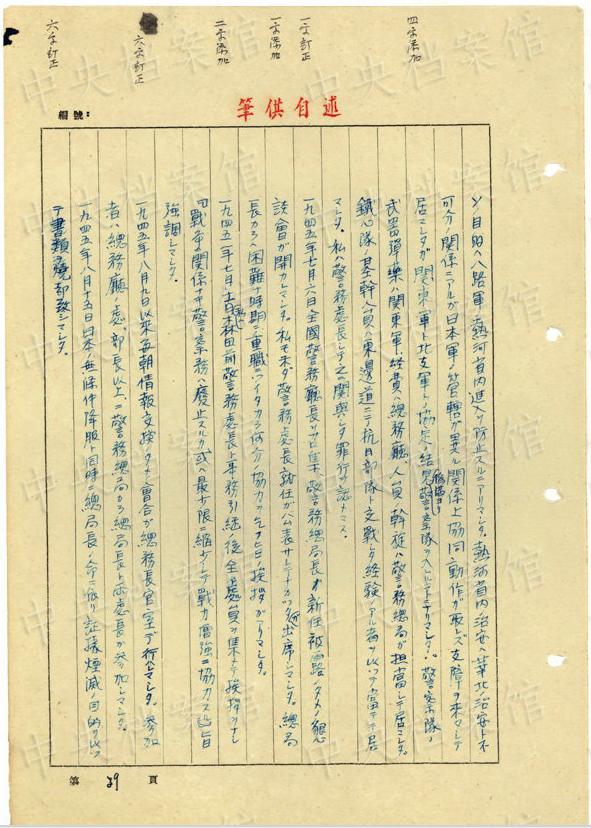 四字添加
一字訂正
一字添加
二字添加
六字訂正
六字訂正
筆供自述
編號:
ソノ目的ハ八路軍ノ熱河省内進入ヲ防止スルニアリマシタ。熱河省内治安ハ華北ノ治安ト不
可分ノ関係ニアルガ日本軍ノ管轄ガ異ル関係上協同動作ガ取レズ支障ヲ来シテ
居マシタガ関東軍ト北支軍トノ協定ノ結果警察隊ヲ入レルコトニナリマシタ。警察隊ノ
武器弾薬ハ関東軍、経費ハ総務廳、人員ノ斡旋ハ警務総局ガ担當シテ居マシタ。
鐵心隊ノ基幹人員ハ東邊道ニテ抗日部隊ト交戦シタ経験ノアル者ヲ以ッテ當テテ居
マシタ。私ハ警務處長トシテ之ニ関與シタ罪行ヲ認メマス。
一九四五年七月六日全國警務廳長ヲ召集、警務総局長ガ新任披露ノタメノ懇
談會ガ開カレマシタ。私モ未ダ警務處長就任ガ公表サレテナカッタガ出席シマシタ。總局
長カラハ困難ナ時期ニ重職ニツイタカラ何分ノ協力ヲ乞フトノ挨拶ガアリマシタ。
一九四五年七月十日森田前警務處長ト事務引継ノ後全處員ヲ集メテ挨拶ヲナシ
戦争ニ関係ナキ警察業務ハ廢止スルカ或ハ最少限ニ縮少シテ戦力増強ニ協力スベキ旨
強調シマシタ。
一九四五年八月九日以来毎朝情報交換ノタメノ會合ガ総務長官室デ行ハレマシタ。参加
者ハ總務廳ノ處、部長以上ニ警務総局カラ總局長ト両處長ガ参加シマシタ。
一九四五年八月十五日日本ノ無條件降服ト同時ニ總局長ノ命ニ依リ証據煙滅ノ目的ヲ以ッ
テ書類ヲ焼却致シマシタ。
第 29 頁
中央档案馆